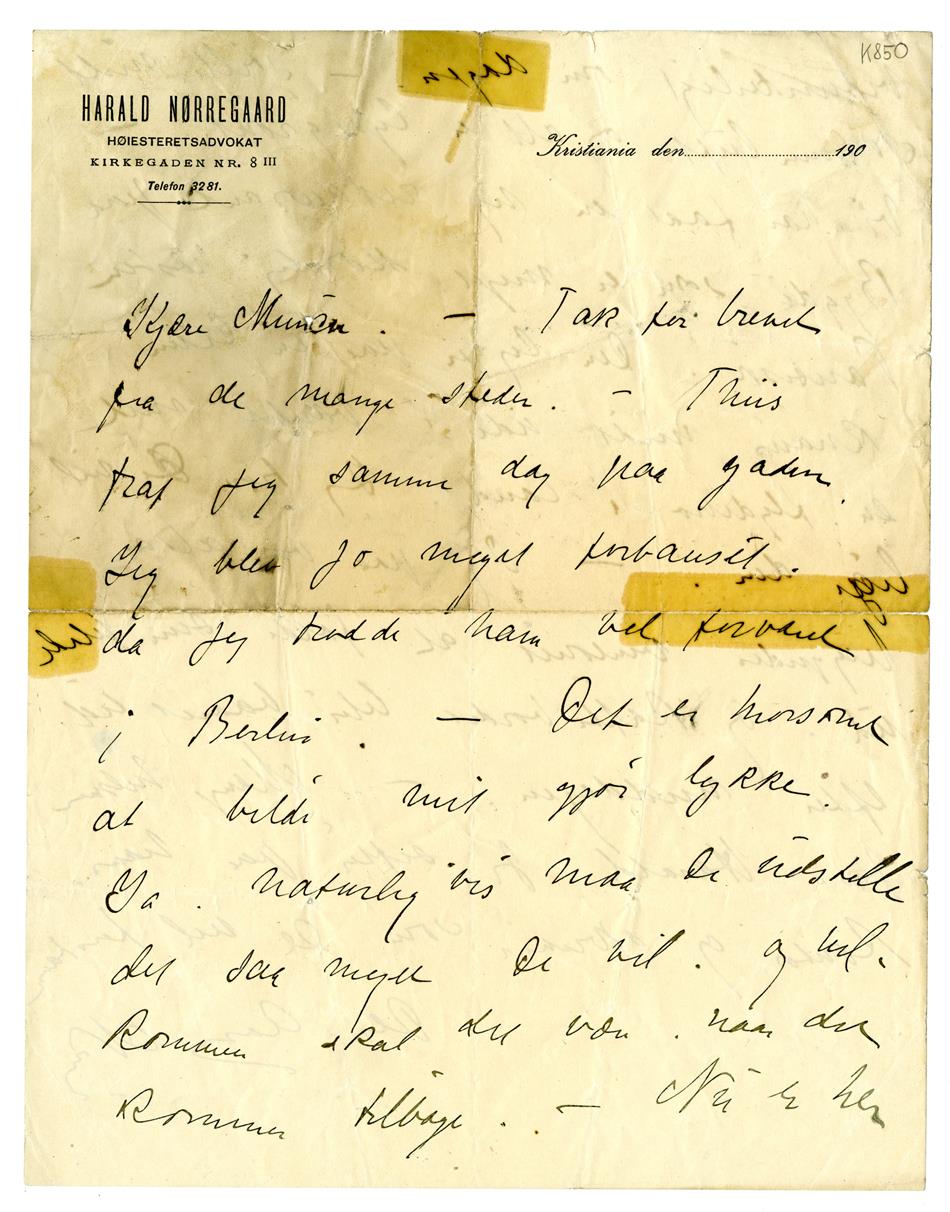 K850
HARALD NØRREGAARD
HØIESTERETSADVOKAT
KIRKEGADEN NR. 8 III
Telefon 3281.
Kristiania den 190
Kjære Munch. — Tak for brevet
fra de mange steder. — Thiis
traf jeg samme dag paa gaden.
Jeg blev jo meget forbauset.
da jeg trodde ham vel forvaret
i Berlin. — Det er morsomt
at billedet mit gjør lykke.
Ja. naturligvis maa De udstille
det saa meget De vil. og vel-
kommen skal det være. naar det
kommer tilbage. — Nu er her